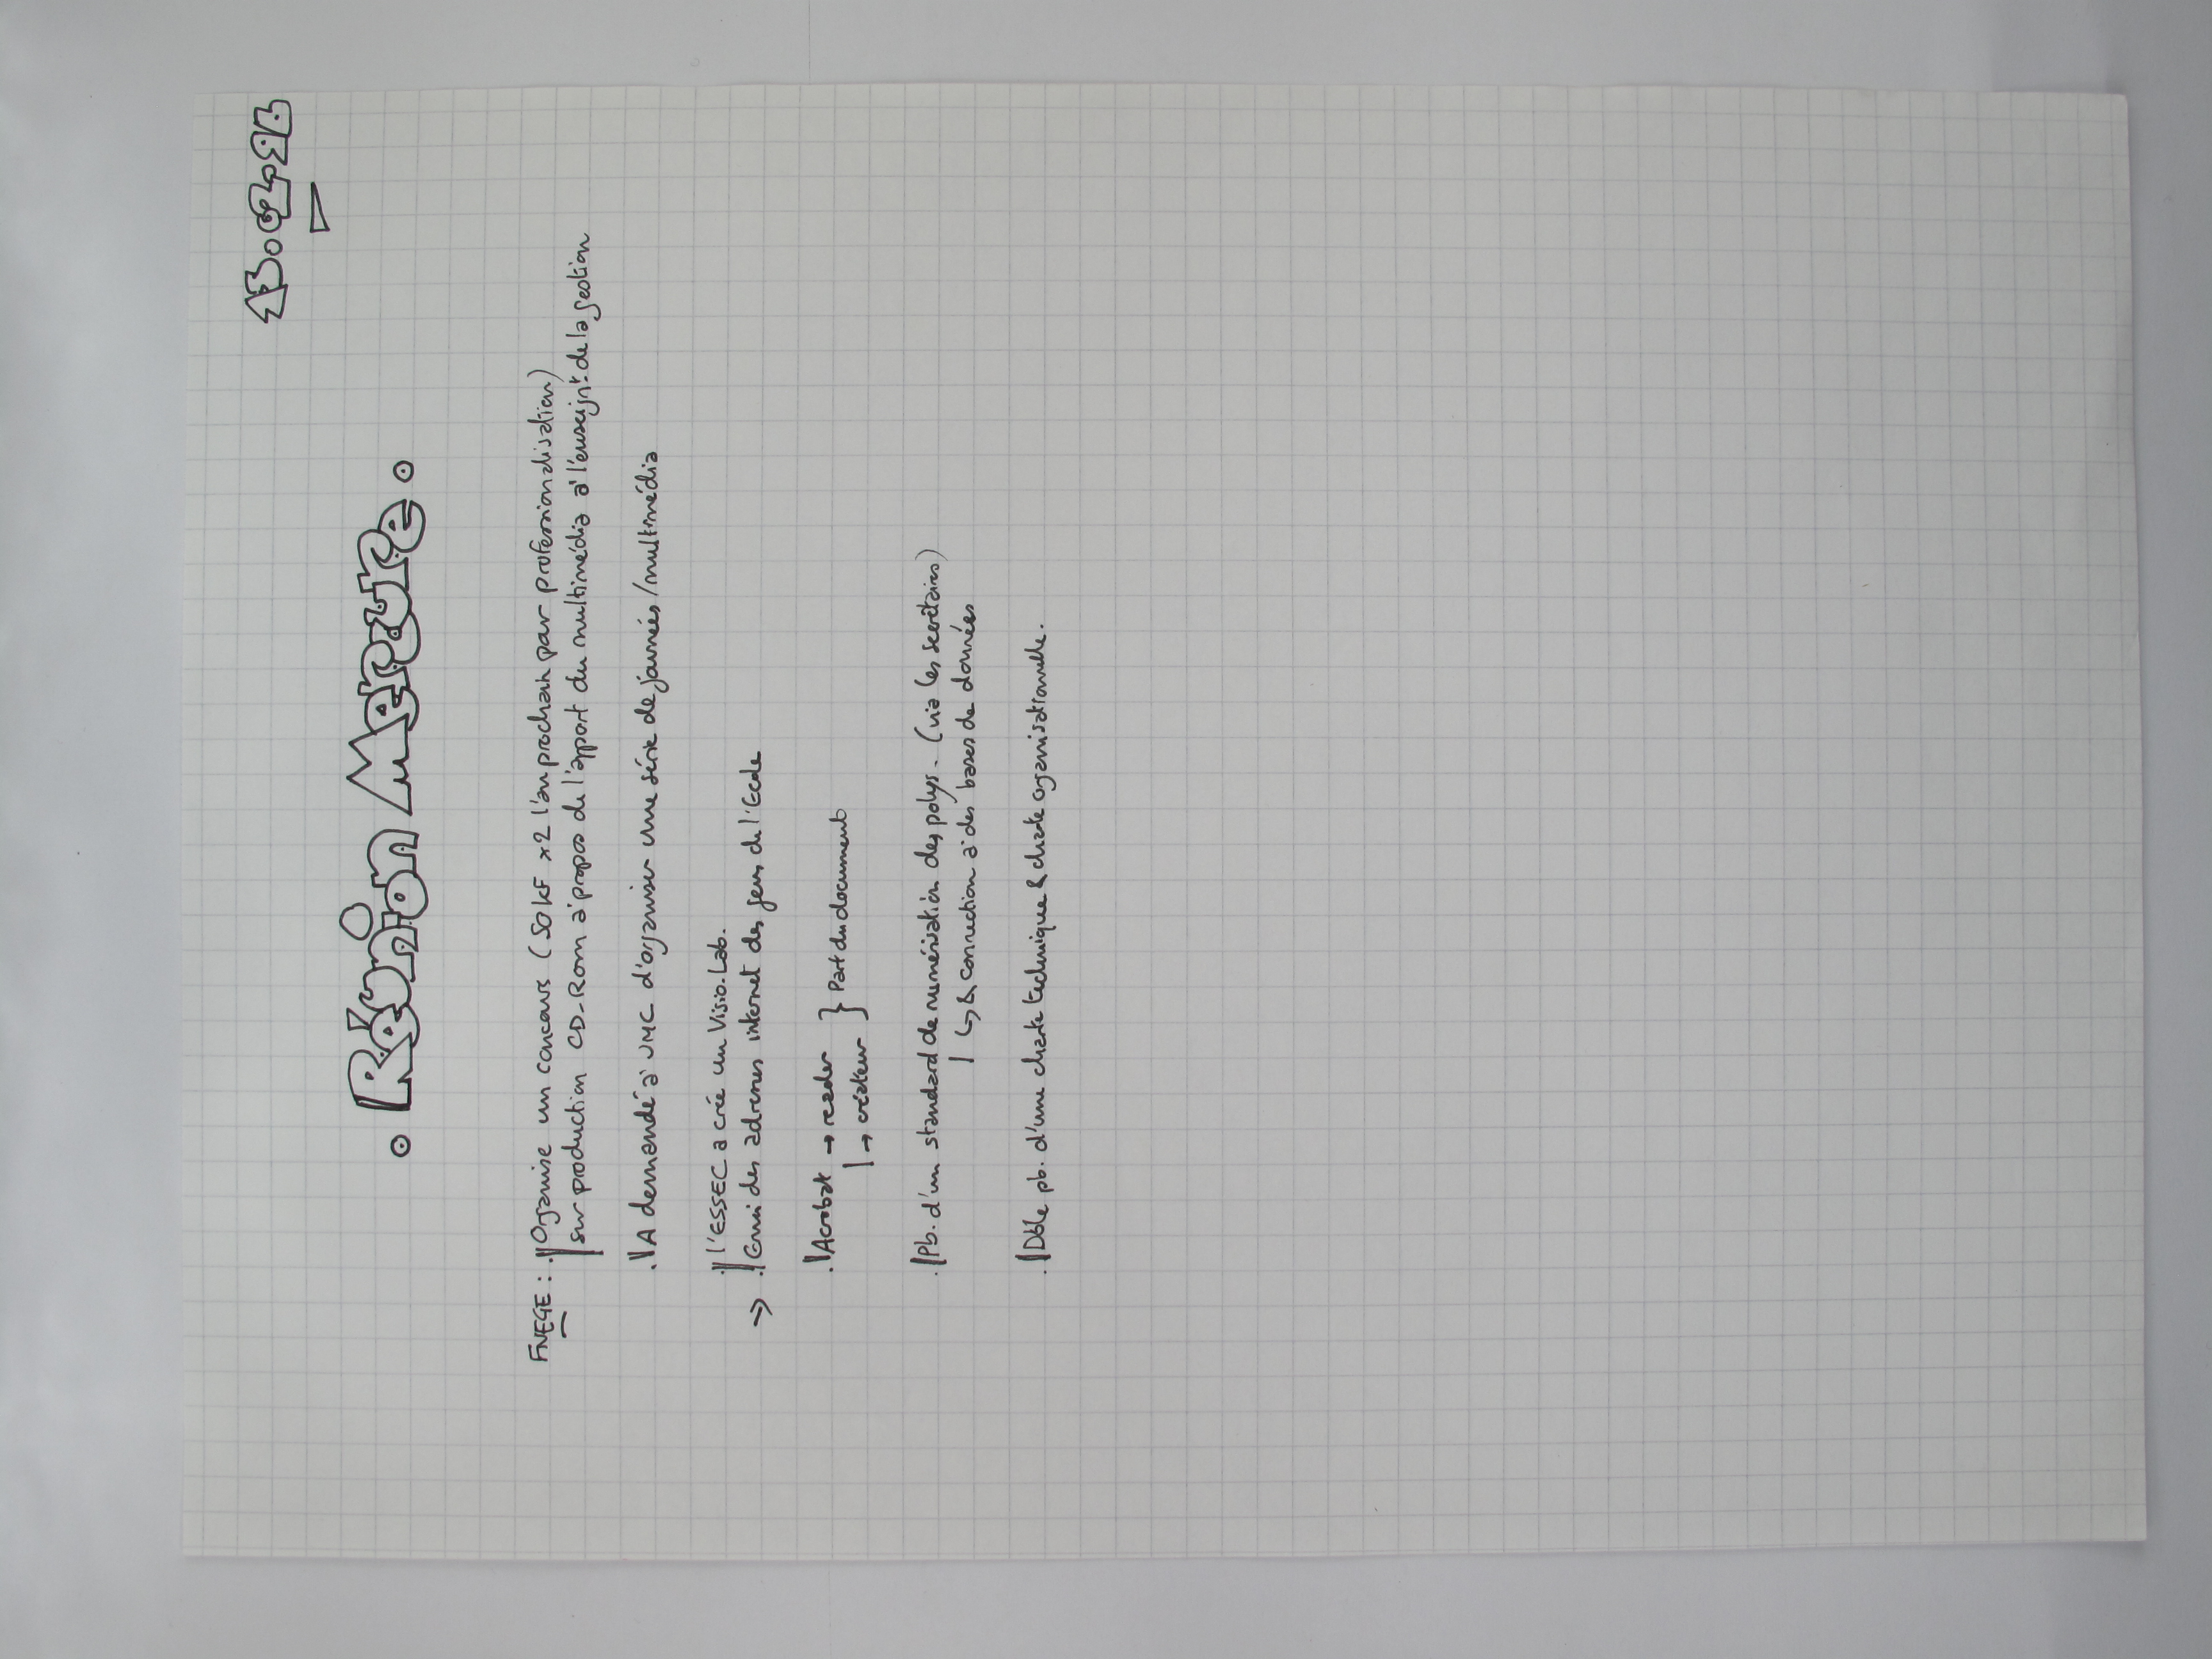 . Réunion Mercure .
FNEGE : . Organise un concours (50 kF x2 l'an prochain par professionalisation)
sur production CD-Rom à propos de l'apport du multimédia à l'enseignt de la gestion
. A demandé à JMC d'organiser une série de journées / multimédia
. l'ESSEC a crée un Visio.Lab.
→ . Envoi des adresses internet des gens de l'Ecole
. Acrobat → reader } Part du document
→ créateur
. Pb. d'un standard de numérisation des polys. (via les secrétaires)
↳ & connection à des bases de données
. Dble pb. d'une charte technique & charte organisationnelle.